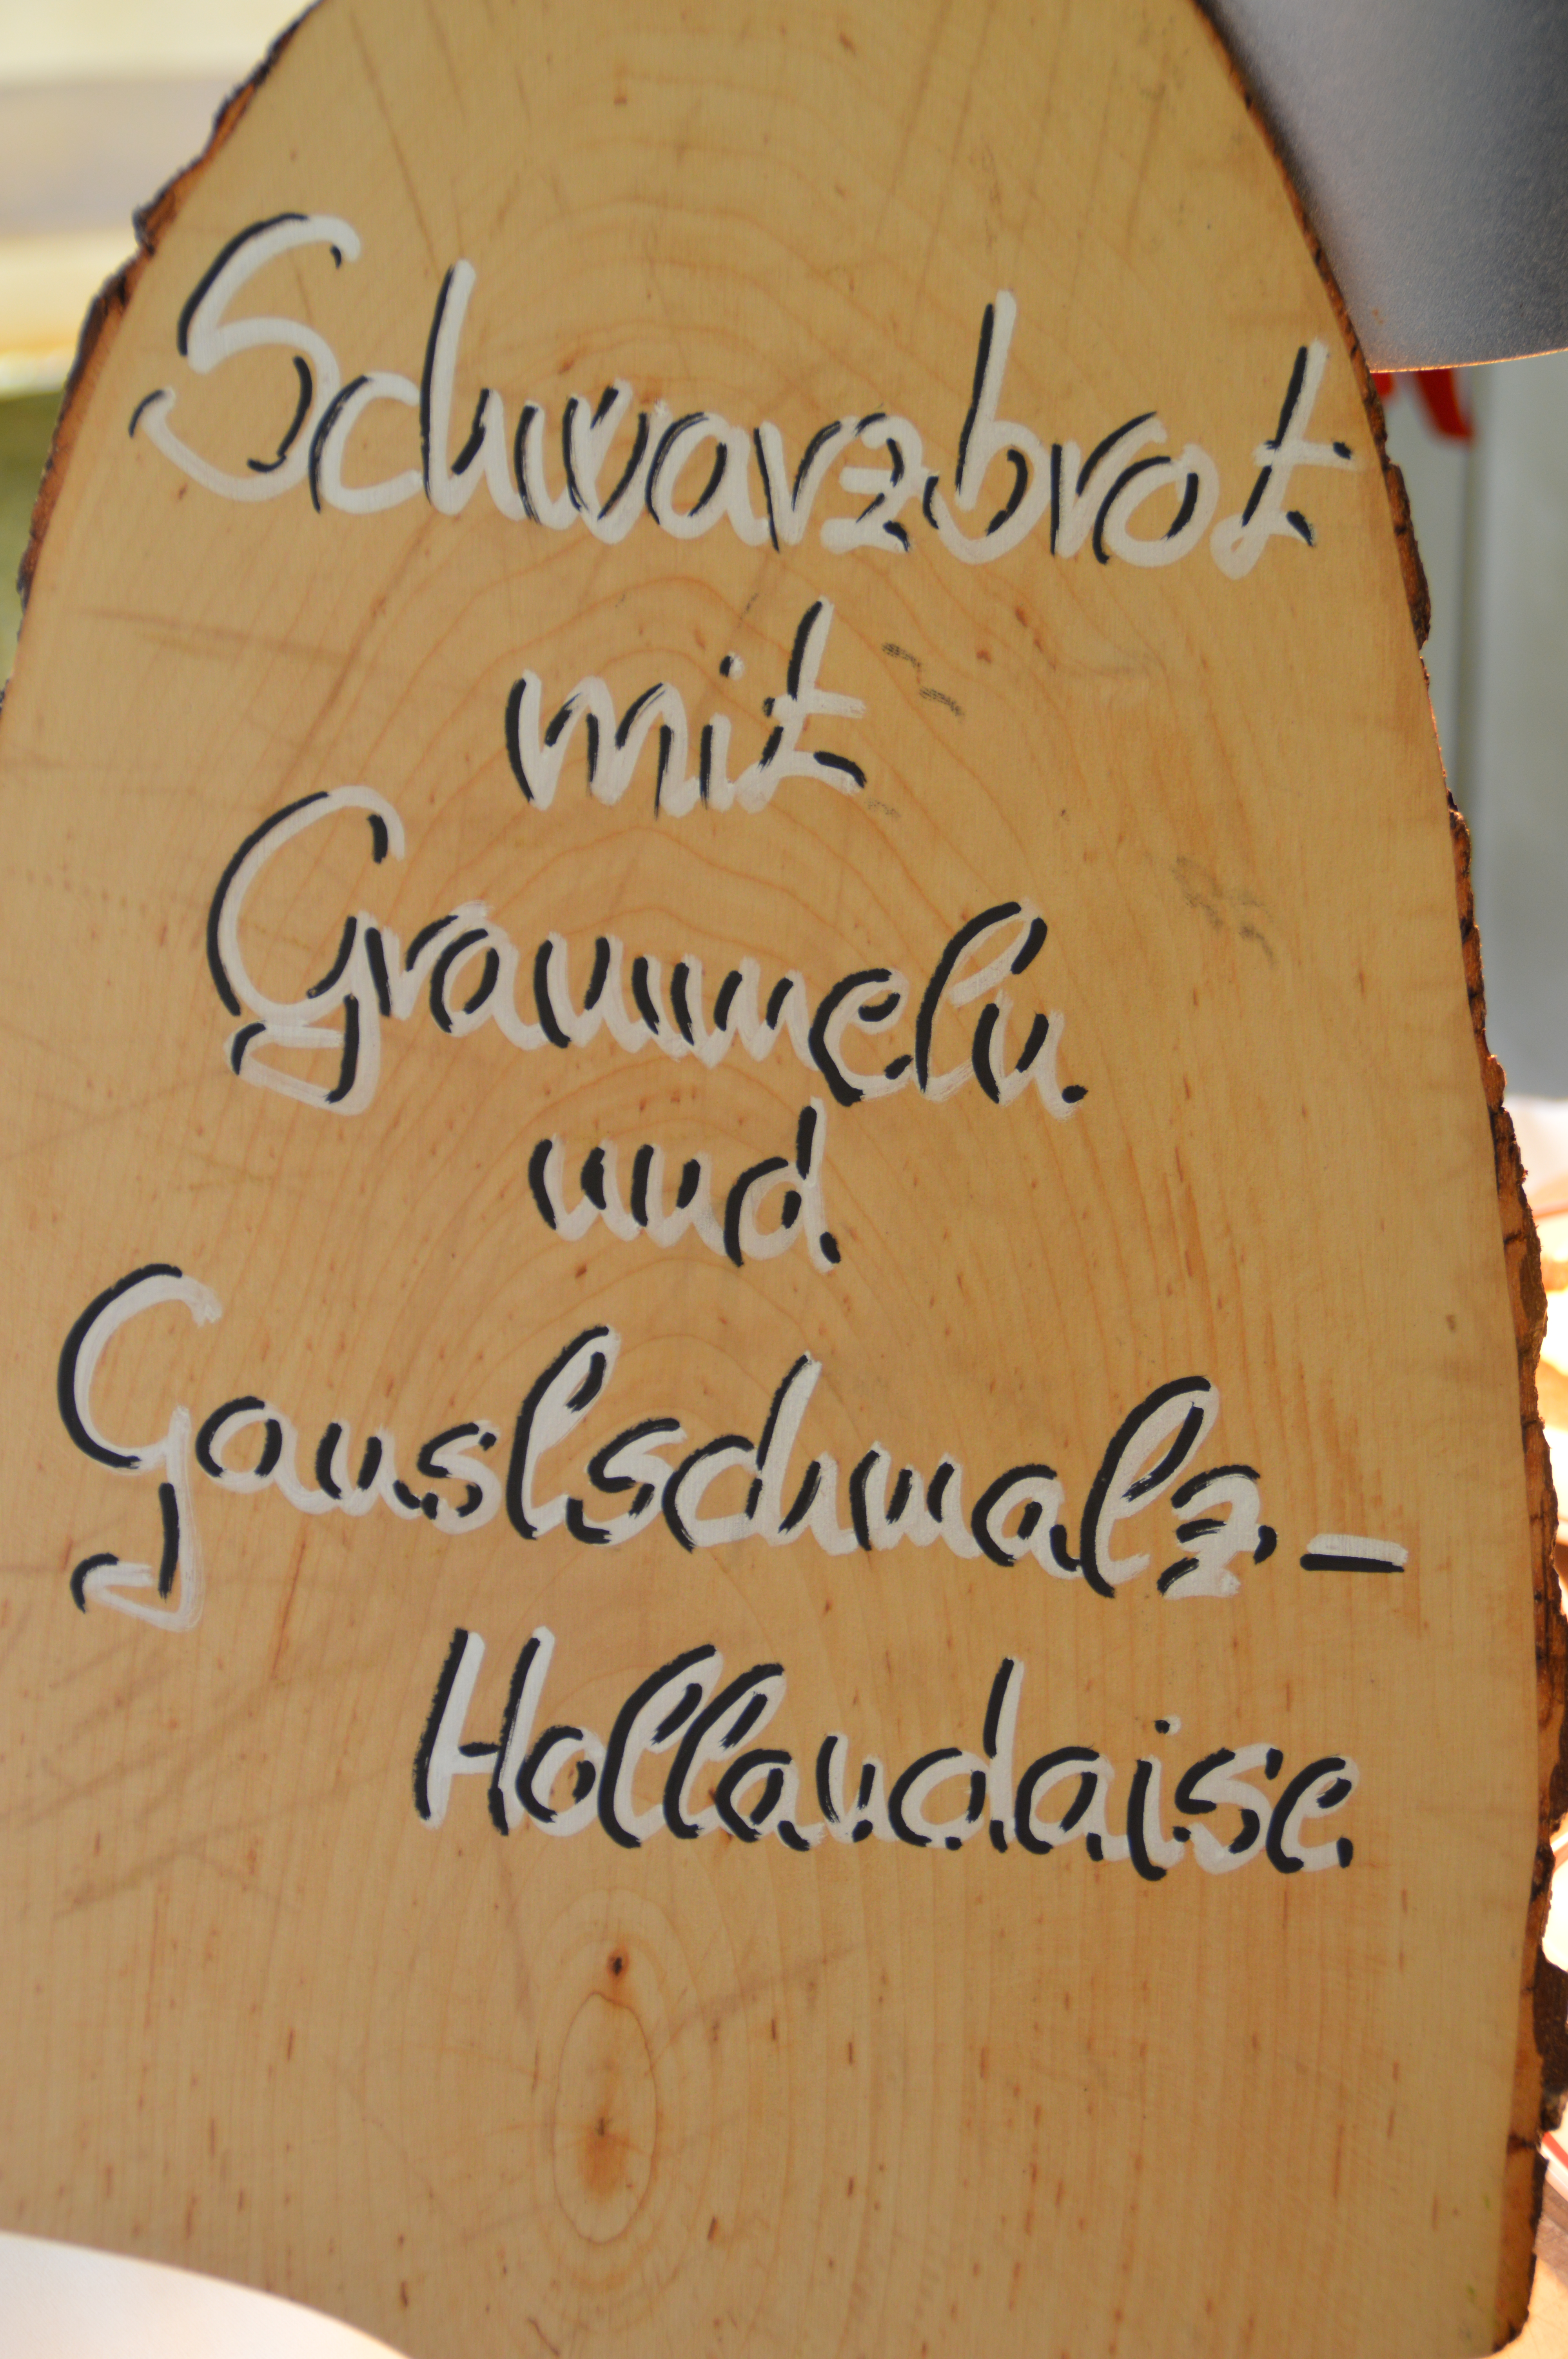 Schwarzbrot
mit
Grammeln
und
Ganslschmalz-
Hollandaise